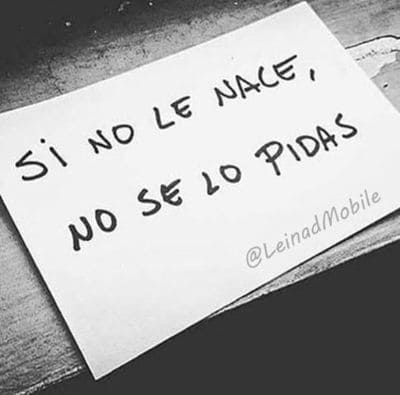 Si NO LE NACE,
NO SE LO PIDAS
@LeinadMobile